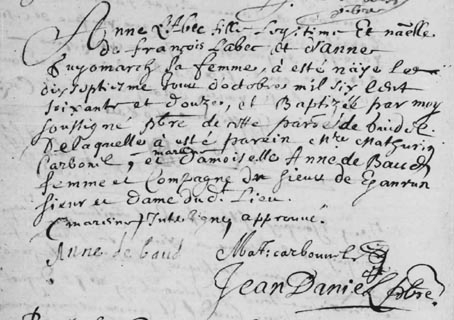 Anne Labec fille legitime et naelle
de francois Labec et d'anne
Guyomarch sa femme, a esté nâye le
dixseptiesme jour d'octobre mil six cent
soixante et douze, et Baptizée par moy
soussigné pbre de cette parse de baud de
Laquelle a esté parein Mre Mathurin
Carbonel, et maraine damoiselle Anne de Baud
femme et Compagne du sieur de
sieur et dame dud. Lieu.
(maraine) Interligne, approuvé.
Anne de baud Mat: carbounel
Jean Daniel pbre